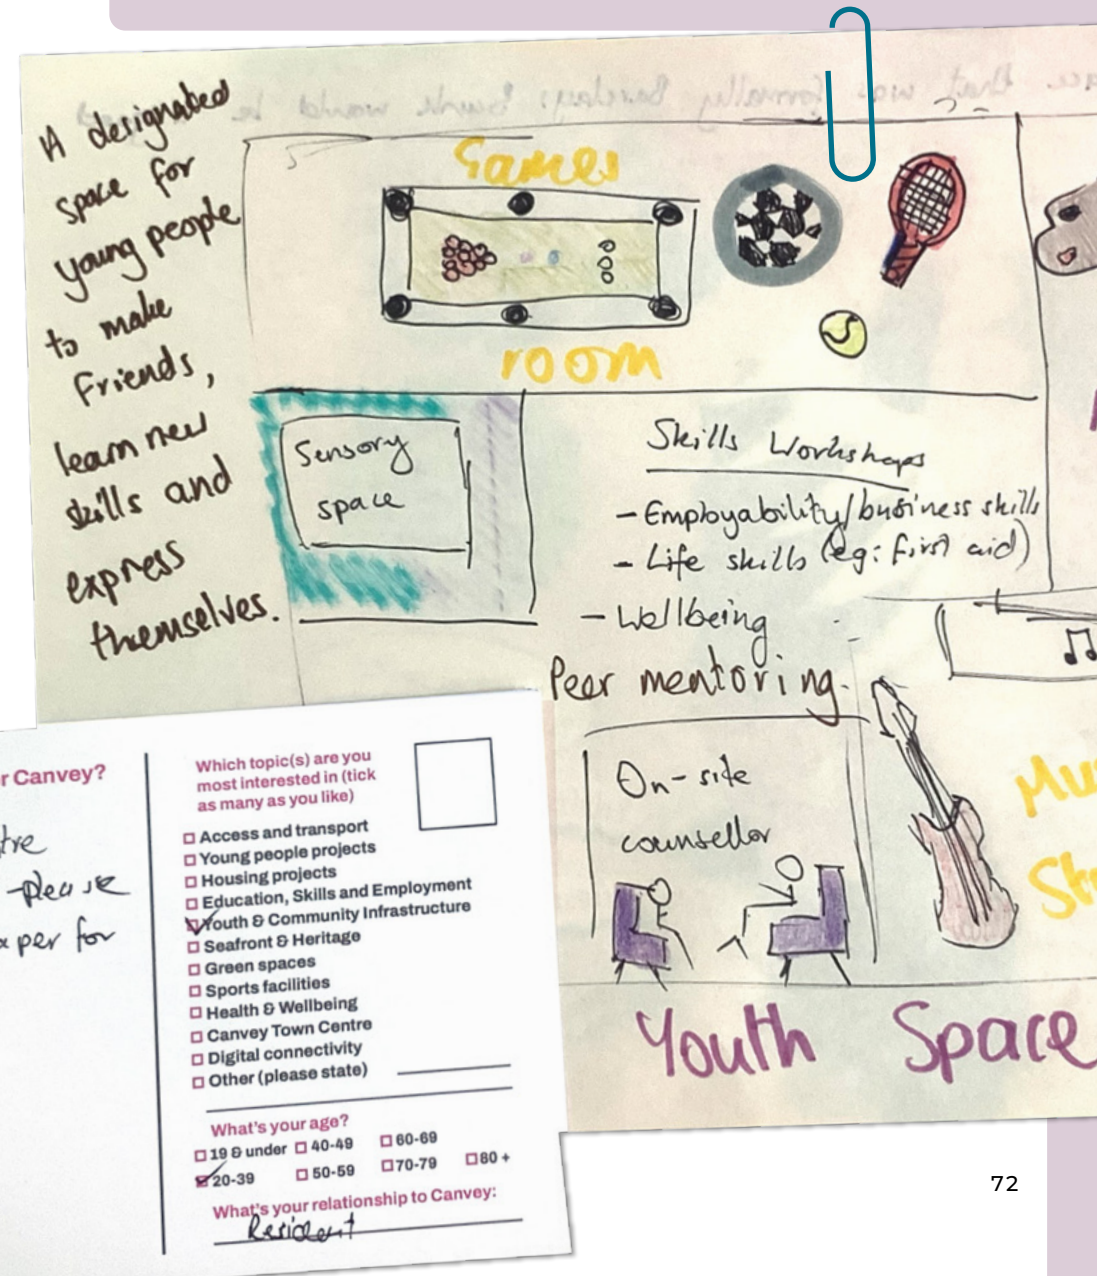 A designated
space for
young people
to make
Friends,
learn new
skills and
express
themselves.
Games
room
Sensory
space
Skills Workshops
- Employability/business skills
- Life skills (eg: first aid)
- Wellbeing
Peer mentoring.
On-site
counsellor
Youth Space
Canvey?
- please
for
Which topic(s) are you
most interested in (tick
as many as you like)
Access and transport
Young people projects
Housing projects
Education, Skills and Employment
Youth & Community Infrastructure
Seafront & Heritage
Green spaces
Sports facilities
Health & Wellbeing
Canvey Town Centre
Digital connectivity
Other (please state)
What's your age?
19 & under 40-49 60-69
20-39 50-59 70-79 80 +
What's your relationship to Canvey:
Resident
72